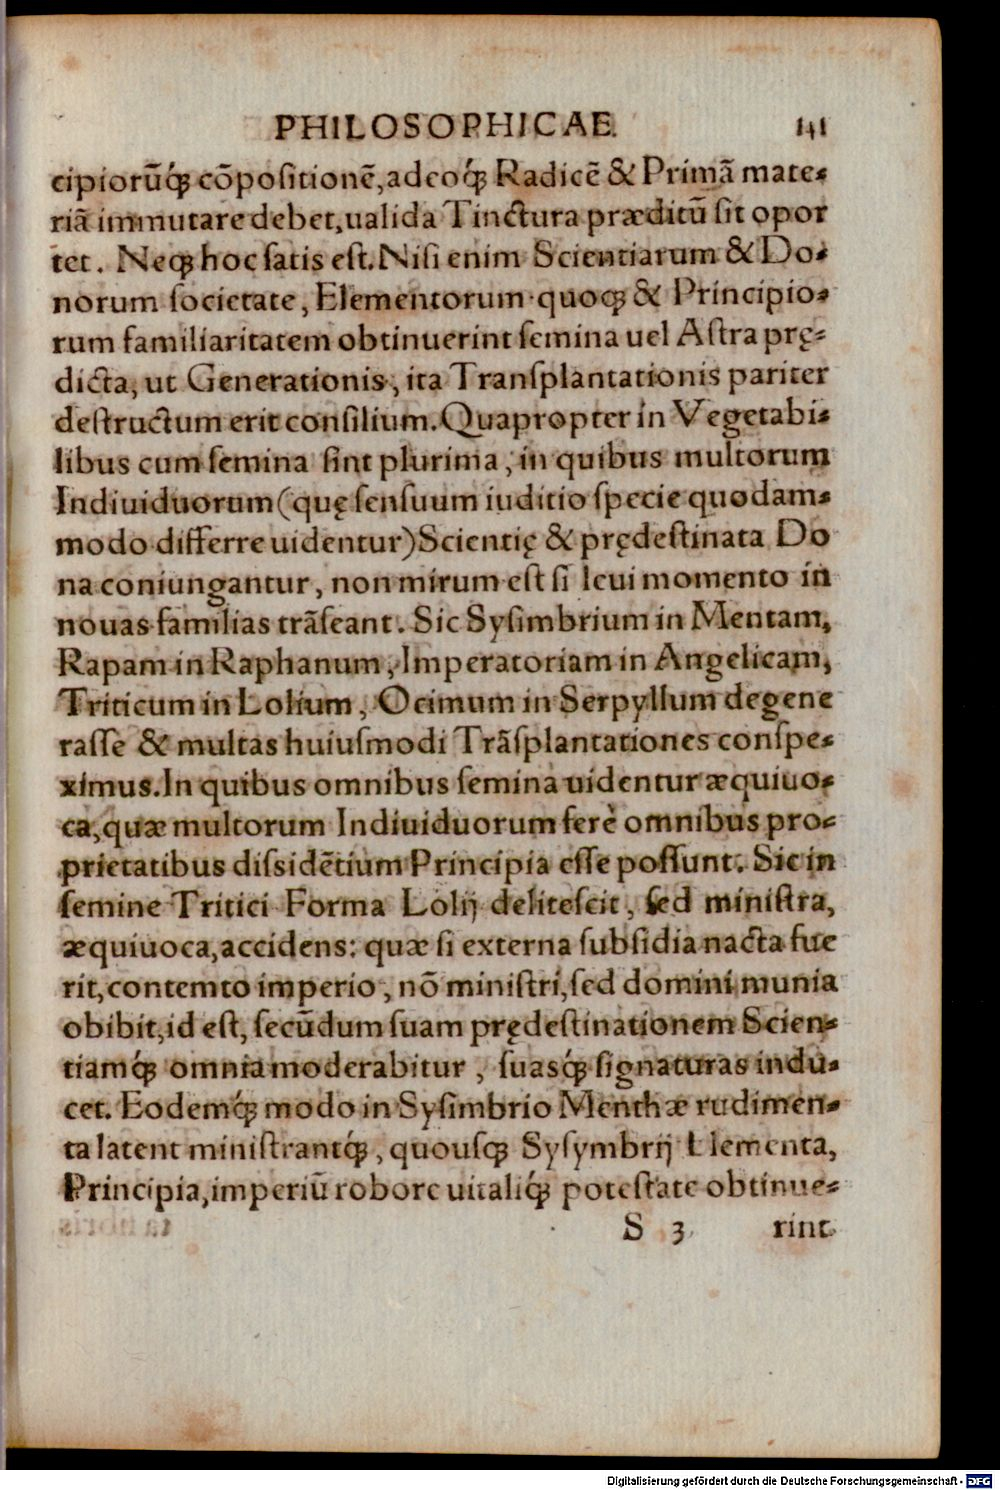 PHILOSOPHICAE. 141
cipiorũq́ꝫ cõpositionẽ, adeoq́ꝫ Radicẽ & Primã mate-
riã immutare debet, ualida Tinctura præditũ sit opor
tet. Neqꝫ hoc satis est. Nisi enim Scientiarum & Do-
norum societate, Elementorum quoqꝫ & Principio-
rum familiaritatem obtinuerint semina uel Astra prę-
dicta, ut Generationis, ita Transplantationis pariter
destructum erit consilium. Quapropter in Vegetabi-
libus cum semina sint plurima, in quibus multorum
Indiuiduorum (quę sensuum iuditio specie quodam-
modo differre uidentur) Scientię & prędestinata Do
na coniungantur, non mirum est si leui momento in
nouas familias trãseant. Sic Sysimbrium in Mentam,
Rapam in Raphanum, Imperatoriam in Angelicam,
Triticum in Lolium, Ocimum in Serpyllum degene
rasse & multas huiusmodi Trãsplantationes conspe-
ximus. In quibus omnibus semina uidentur æquiuo-
ca, quæ multorum Indiuiduorum ferè omnibus pro-
prietatibus dissidẽtium Principia esse possunt. Sic in
semine Tritici Forma Lolij delitescit, sed ministra,
æquiuoca, accidens: quæ si externa subsidia nacta fue
rit, contemto imperio, nõ ministri, sed domini munia
obibit, id est, secũdum suam prędestinationem Scien-
tiamq́ꝫ omnia moderabitur, suasq́ꝫ signaturas indu-
cet. Eodemq́ꝫ modo in Sysimbrio Menthæ rudimen-
ta latent ministrantq́ꝫ, quousqꝫ Sysymbrij Elementa,
Principia, imperiũ robore uitaliq́ꝫ potestate obtinue-
S 3 rint
Digitalisierung gefördert durch die Deutsche Forschungsgemeinschaft - DFG